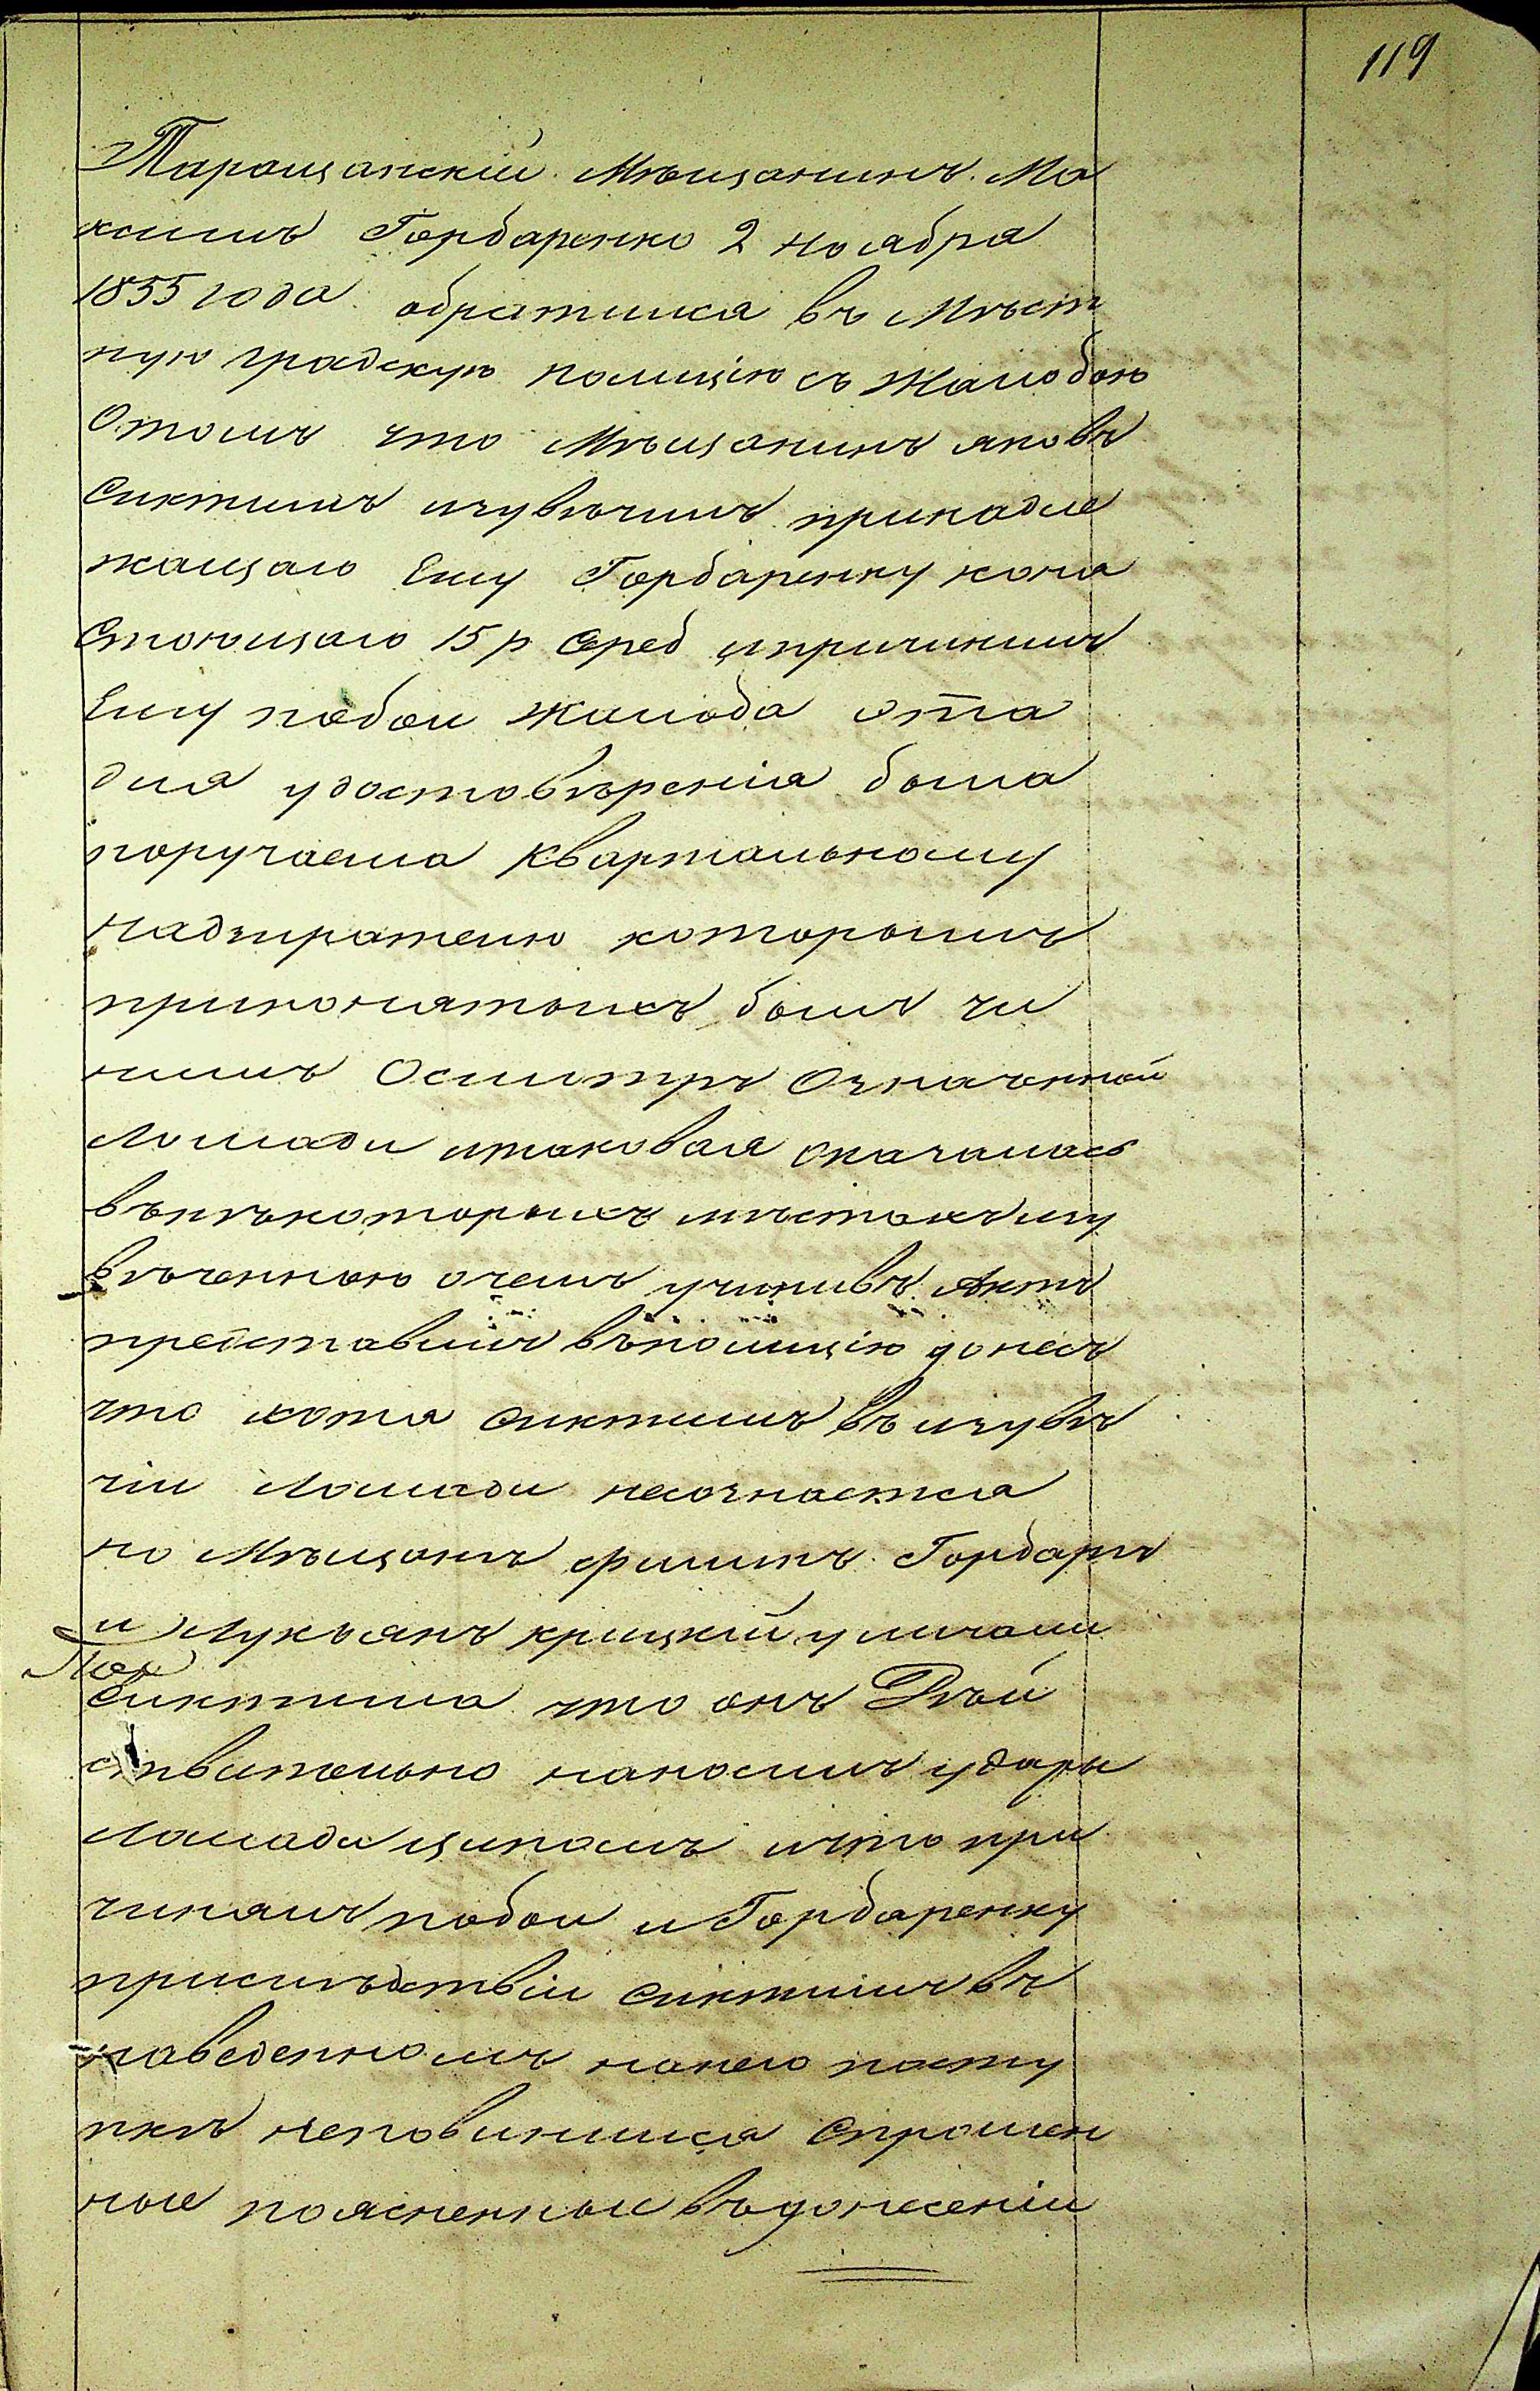 119
Таращанскій Мѣщанинъ Ма
ксимъ Горбаренко 2 ноября
1855 года обратился въ Мѣст
ную градскую полицію съ Жалобою
Отомъ что Мѣщанинъ яковъ
Сиктимъ изувѣчилъ принадле
жащаго Ему Горбаренку коня
Стоющаго 15 р Сереб ипричинилъ
Ему побои Жалоба эта
для удостовѣренія была
поручаема Квартальному
надзирателю которымъ
припонятыхъ былъ чи
нимъ Осмотръ Означенной
Лошади итаковая оказалась
внѣкоторыхъ мѣстахъ изу
вѣченною очемъ учинивъ Актъ
представилъ вполицію донесъ
что хотя Сиктимъ въ изувѣ
чіи Лошади несознается
но Мѣщане филипъ Горбарь
и Лукьянъ крицкій уличали
Сиктима что онъ Дѣй
ствительно наносилъ удары
Лошади цѣпомъ ичто при
чинялъ побои и Горбаренку
прислѣдствіи Сиктимъ въ
наведенномъ нанего посту
пкѣ неповинился Спрошен
ные поясненные въдонесеніи